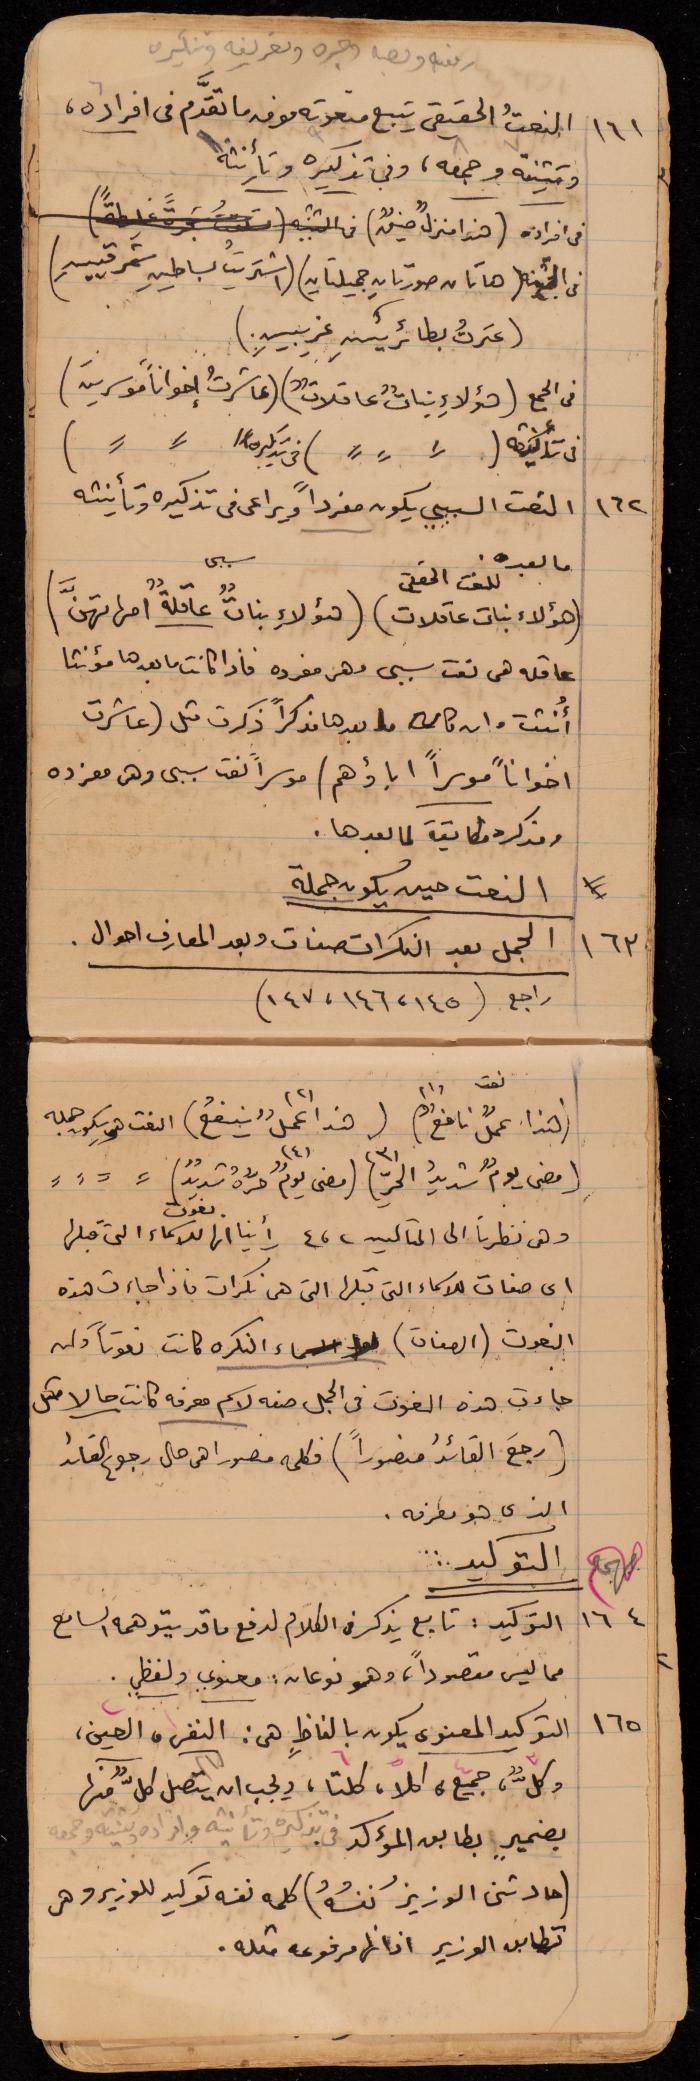 رفعه ونصبه وجره وتعريفه وتنكيره
١٦١ النعتُ الحقيقي يتبع منعوته فوق ما تقدَّم في افراده،
وتثنيته وجمعه، وفي تذكيره وتأنيثه
في افراده (هذا منزلٌ ضيقٌ) في التثنيه
في التثنيه (هاتان صورتان جميلتان) (اشتريتُ بساطينِ شرقيينِ)
(عثرتُ بطائرينِ غريبينِ.)
في الجمع (هؤلاءِ بناتٌ عاقلاتٌ) (عاشرتُ إخواناً موسرينَ)
في تأنيثه ( ״ ״ ״ ) في تذكيره ( ״ ״ )
١٦٢ النعت السببي يكون مفرداً ويراعى في تذكيره وتأنيثه
ما بعده.
للنعت الحقيقي سببي
(هؤلاء بنات عاقلات) (هؤلاءِ بناتٌ عاقلةٌ امهاتهنَّ)
عاقله هي نعت سببي وهي مفرده فاذا كانت ما بعدها مؤنثا
أُنثت وان كان ما بعدها مذكراً ذكرت مثل (عاشرت
اخواناً موسراً اباؤهم) موسراً نعت سببي وهي مفرده
ومذكره مطابقة لما بعدها.
النعت حين يكون جملة
١٦٣ الجمل بعد النكرات صفات وبعد المعارف احوال.
راجع (١٤٥، ١٤٦، ١٤٧)
نعت (١) (٢)
(هذا عملٌ نافعٌ) (هذا عملٌ ينفعُ) النعت هي يكون جمله
(٣) (٤)
(مضى يومٌ شديدُ الحرِّ) (مضى يومٌ حرُّهُ شديدٌ) ״ ״ ״ ״
نعوت
وهي نظرنا الى المثالين ٢، ٤ رأينا انها للاسماء التي قبلها
اي صفات للاسماء التي قبلها التي هي نكرات فاذا جاءت هذه
النعوت (الصفات) النكره كانت نعوتاً وان
جاءت هذه النعوت في الجمل صفه لاسم معرفه كانت حالا مثل
(رجعَ القائدُ منصوراً) فكلمه منصورا هي حال رجوع القائد
الذي هو معرفه.
التوكيد
١٦٤ التوكيد: تابع يذكر في الكلام لدفع ما قد يتوهمه السامع
مما ليس مقصوداً، وهو نوعان: معنوي ولفظي.
١٦٥ التوكيد المعنوي يكون بالفاظٍ هي: النفس، العين،
وكلٌّ، جميع، كلا، كلتا، ويجب ان يتصل كلٌّ منها
بضميرٍ يطابق المؤكد في تذكيره وتأنيثه وافراده وتثنيته وجمعه
(حادثني الوزيرُ نفسُهُ) كلمه نفسه توكيد للوزير وهي
تطابق الوزير اذ انها مرفوعه مثله.